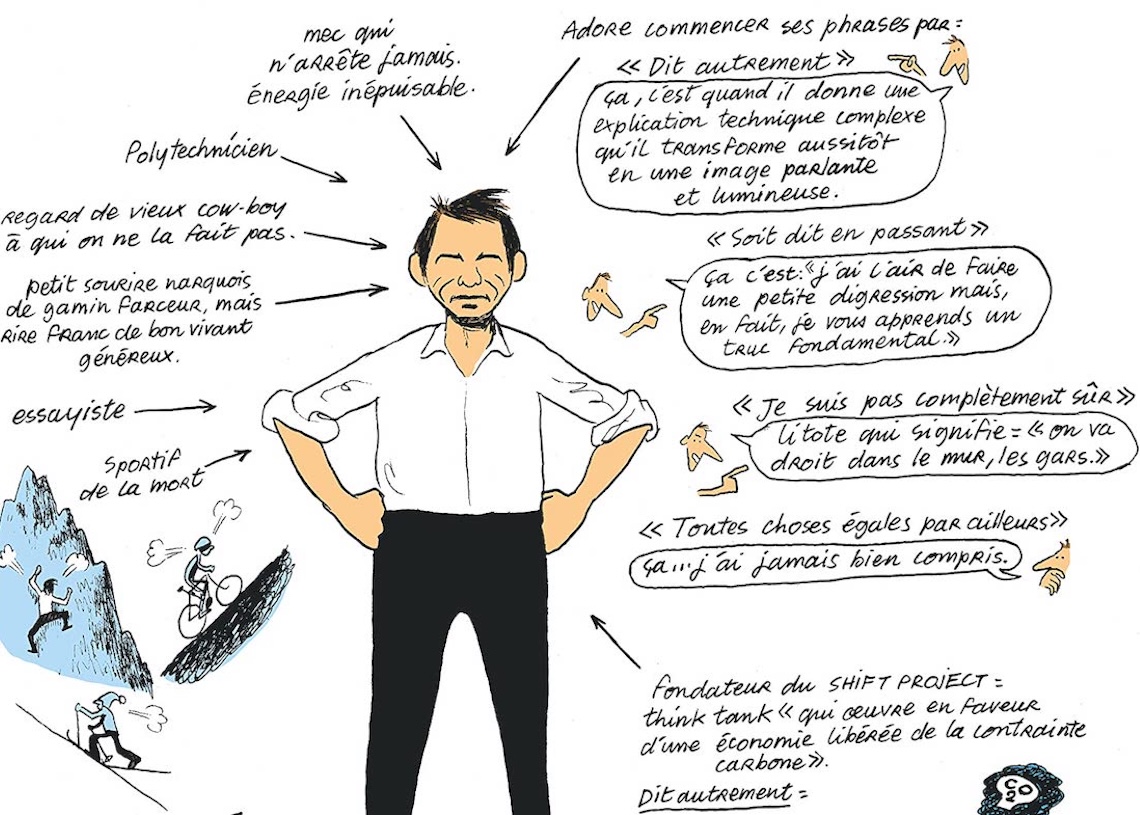 mec qui
n'arrête jamais.
énergie inépuisable.
Polytechnicien
regard de vieux cow-boy
à qui on ne la fait pas.
petit sourire narquois
de gamin farceur, mais
rire franc de bon vivant
généreux.
essayiste
sportif
de la mort
Adore commencer ses phrases par =
« Dit autrement »
Ça, c'est quand il donne une
explication technique complexe
qu'il transforme aussitôt
en une image parlante
et lumineuse.
« Soit dit en passant »
Ça c'est : « j'ai l'air de faire
une petite digression mais,
en fait, je vous apprends un
truc fondamental. »
« Je suis pas complètement sûr »
litote qui signifie = « on va
droit dans le mur, les gars. »
« Toutes choses égales par ailleurs »
Ça... j'ai jamais bien compris.
fondateur du SHIFT PROJECT =
think tank « qui œuvre en faveur
d'une économie libérée de la contrainte
carbone ».
Dit autrement =
CO2